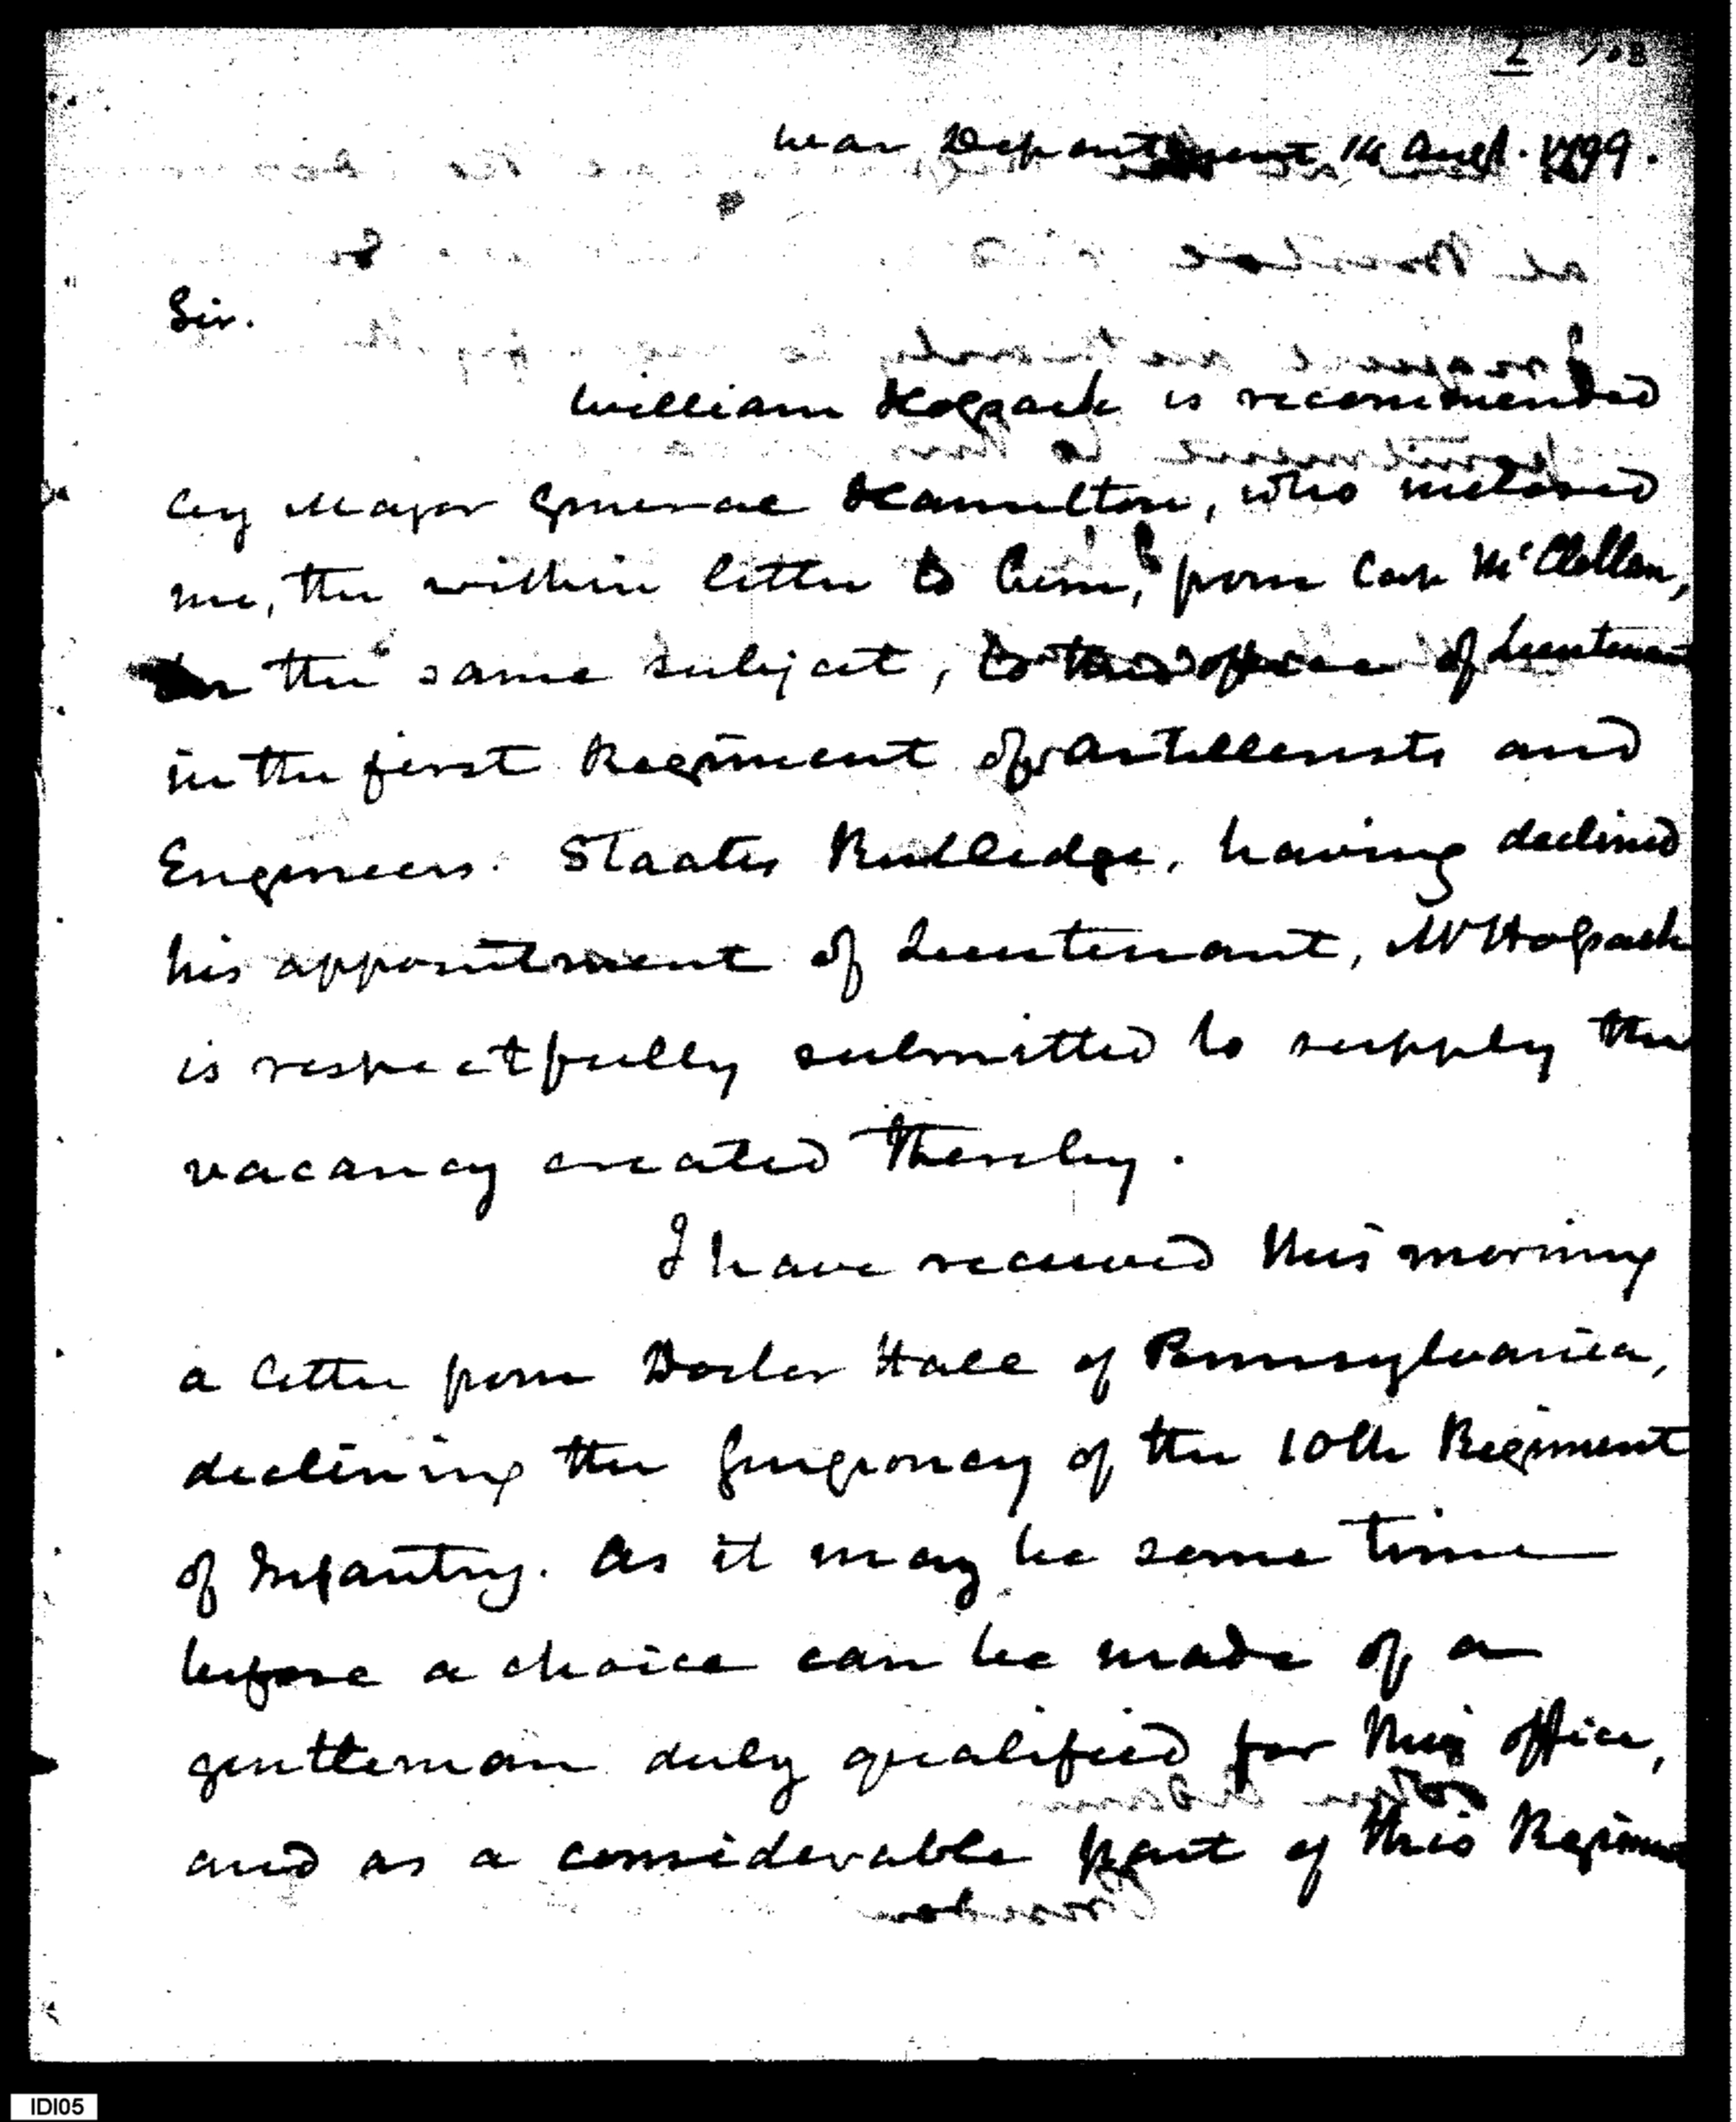 2 103
War Department 14 Augt. 1799.
Sir.
William Hogsack is recommended
by Major General Hamilton, who inclosed
me, the within letter to him, from Cap McClellan,
on the same subject, to the office of Lieutenant
in the first Regiment of Artillerists and
Engineers. Staats Rutledge, having declined
his appointment of Lieutenant, Mr Hogsack
is respectfully submitted to supply the
vacancy created thereby.
I have received this morning
a letter from Doctor Hall of Pennsylvania,
declining the Surgeoncy of the 10th Regiment
of Infantry. As it may be some time
before a choice can be made of a
gentleman duly qualified for this office,
and as a considerable part of this Regiment
IDI05